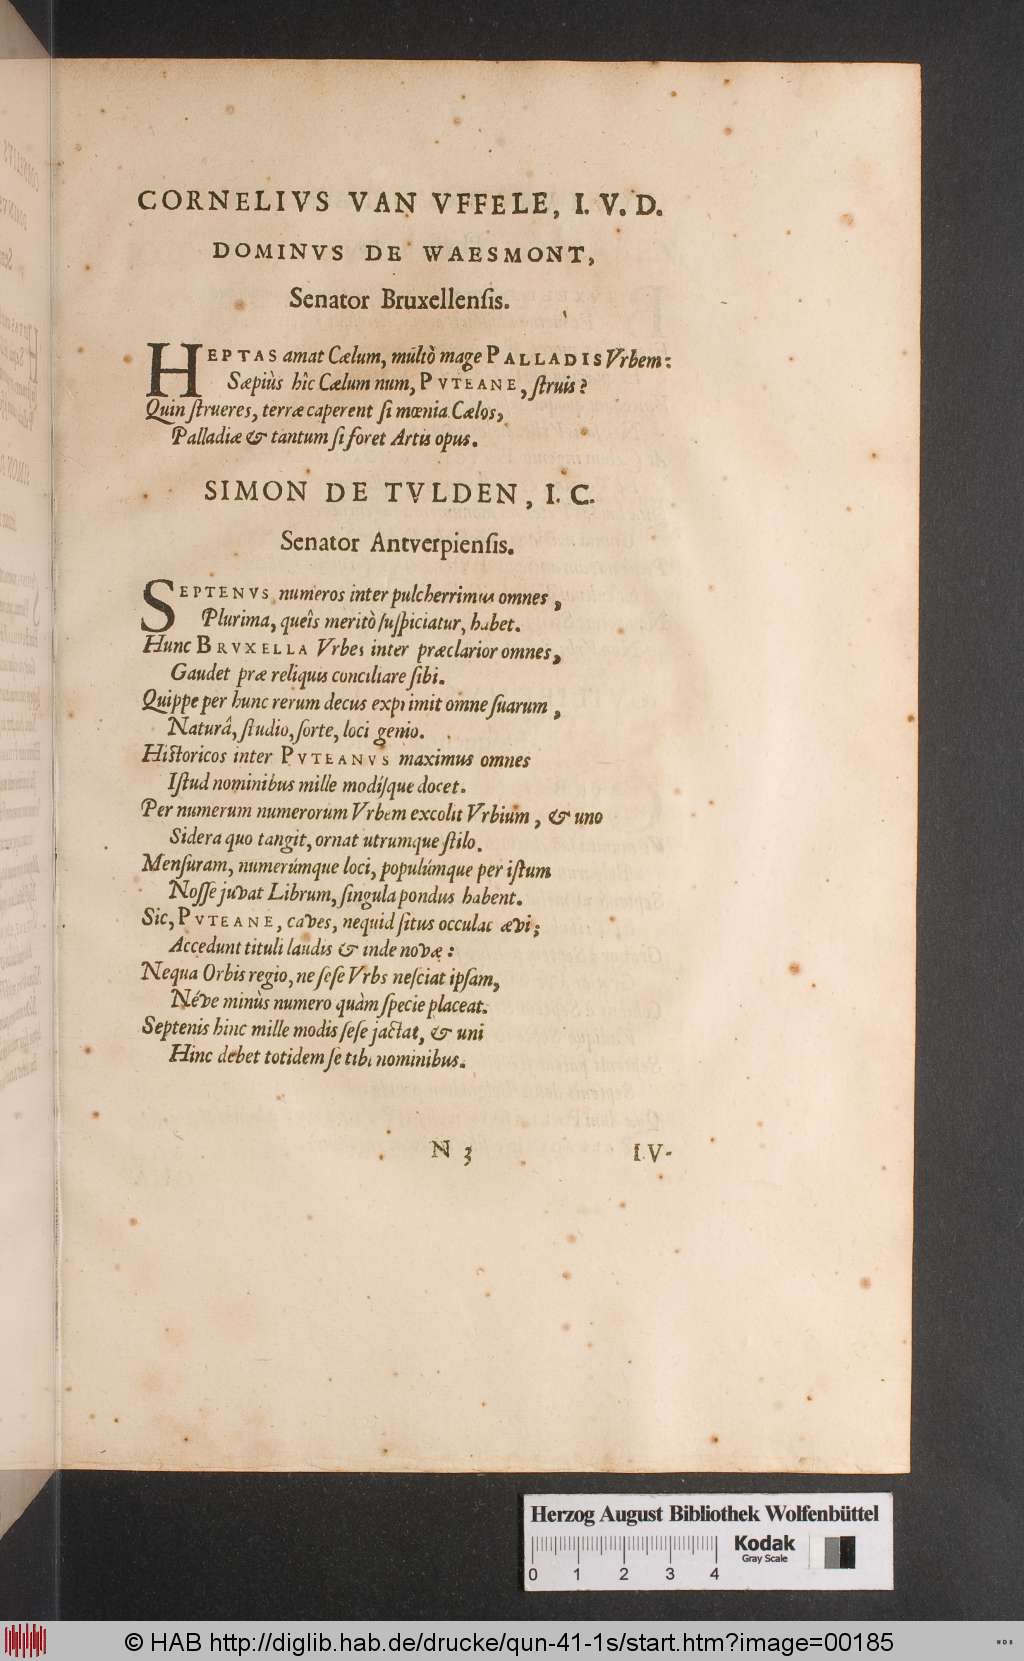 CORNELIVS VAN VFFELE, I. V. D.
DOMINVS DE WAESMONT,
Senator Bruxellenſis.
HEPTAS amat Cælum, multò mage PALLADIS Vrbem:
Sæpiùs hîc Cælum num, PVTEANE, ſtruis?
Quin ſtrueres, terræ caperent ſi mœnia Cælos,
Palladiæ & tantum ſi foret Artis opus.
SIMON DE TVLDEN, I. C.
Senator Antverpienſis.
SEPTENVS numeros inter pulcherrimus omnes,
Plurima, queîs meritò ſuſpiciatur, habet.
Hunc BRVXELLA Vrbes inter præclarior omnes,
Gaudet præ reliquis conciliare ſibi.
Quippe per hunc rerum decus exprimit omne ſuarum,
Naturâ, ſtudio, ſorte, loci genio.
Hiſtoricos inter PVTEANVS maximus omnes
Iſtud nominibus mille modiſque docet.
Per numerum numerorum Vrbem excolit Vrbium, & uno
Sidera quo tangit, ornat utrumque ſtilo.
Menſuram, numerúmque loci, populúmque per iſtum
Noſſe juvat Librum, ſingula pondus habent.
Sic, PVTEANE, caves, nequid ſitus occulat ævi;
Accedunt tituli laudis & inde novæ:
Nequa Orbis regio, ne ſeſe Vrbs neſciat ipſam,
Néve minùs numero quàm ſpecie placeat.
Septenis hinc mille modis ſeſe jactat, & uni
Hinc debet totidem ſe tibi nominibus.
N 3 IV-
Herzog August Bibliothek Wolfenbüttel
Kodak
Gray Scale
0 1 2 3 4
© HAB http://diglib.hab.de/drucke/qun-41-1s/start.htm?image=00185